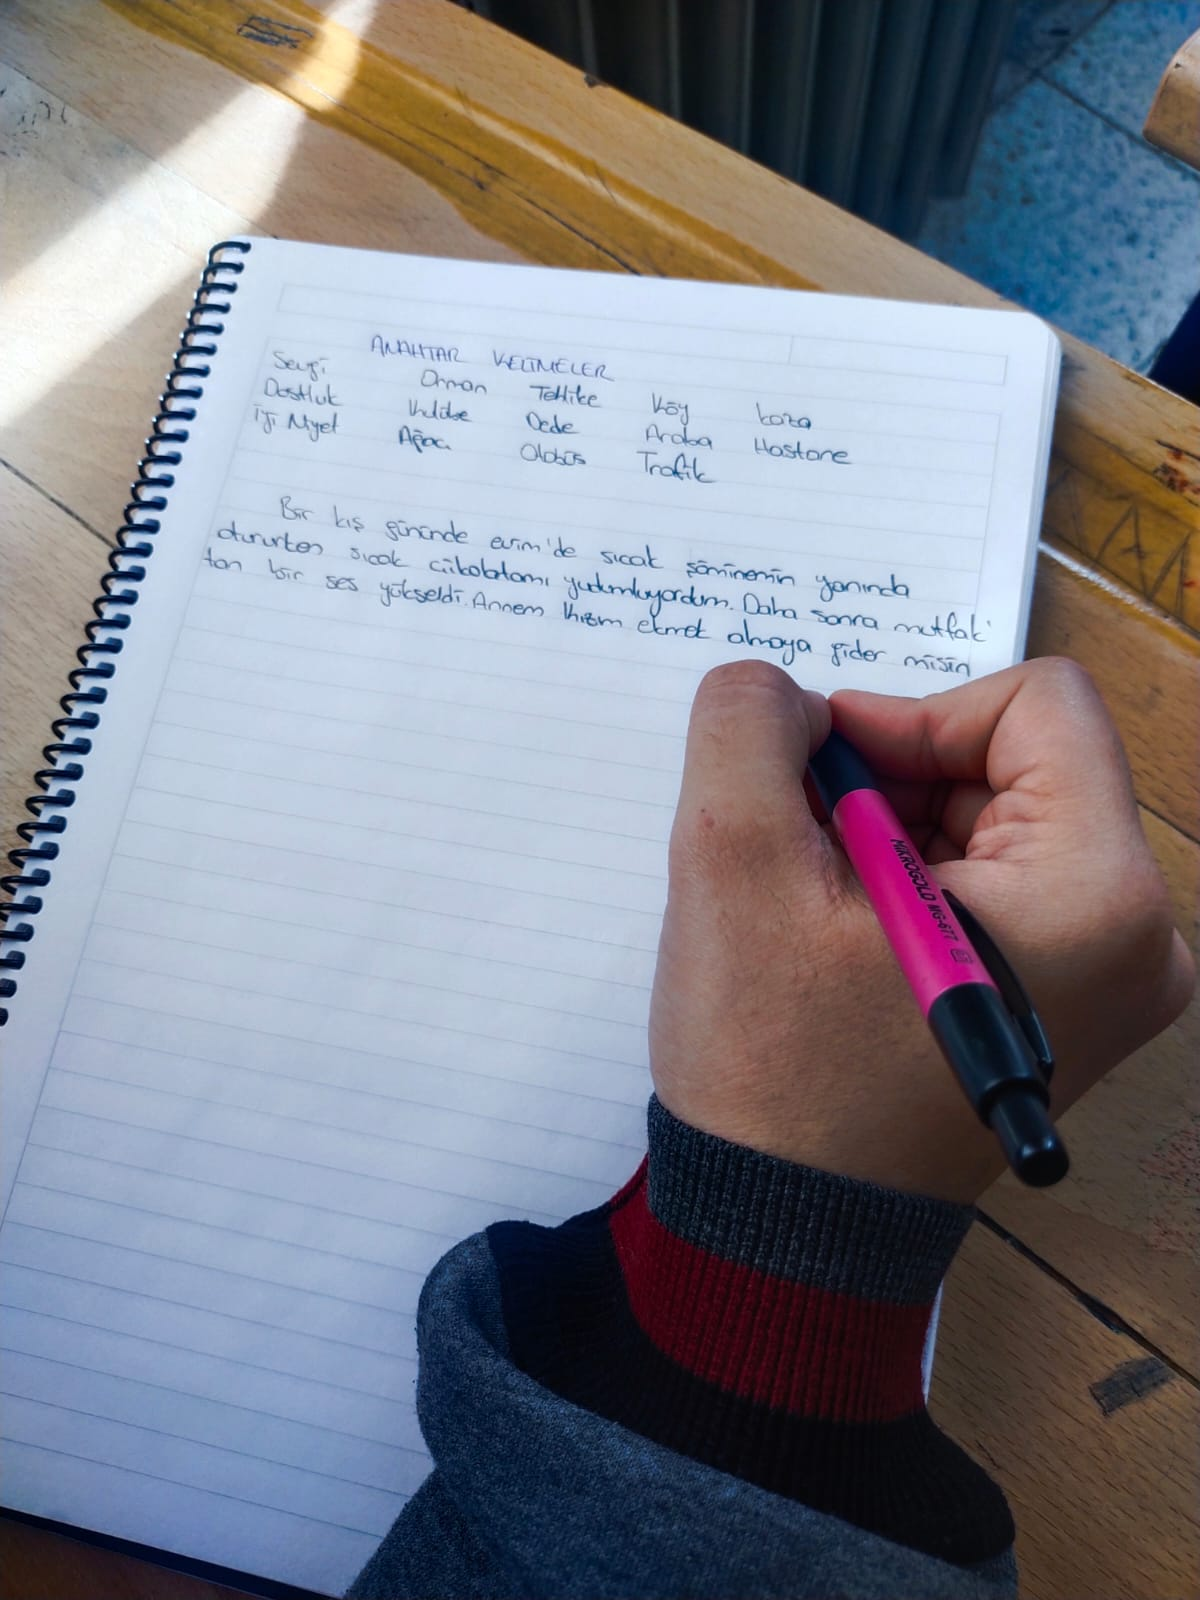 ANAHTAR KELİMELER
Sevgi Orman Tehlike Köy Kaza
Dostluk Kulübe Dede Araba Hastane
İyi Niyet Ağaç Otobüs Trafik
Bir kış gününde evim'de sıcak şöminenin yanında
otururken sıcak çikolatamı yudumluyordum. Daha sonra mutfak'
tan bir ses yükseldi. Annem kızım ekmek almaya gider misin
MİKROGOLD MG-677